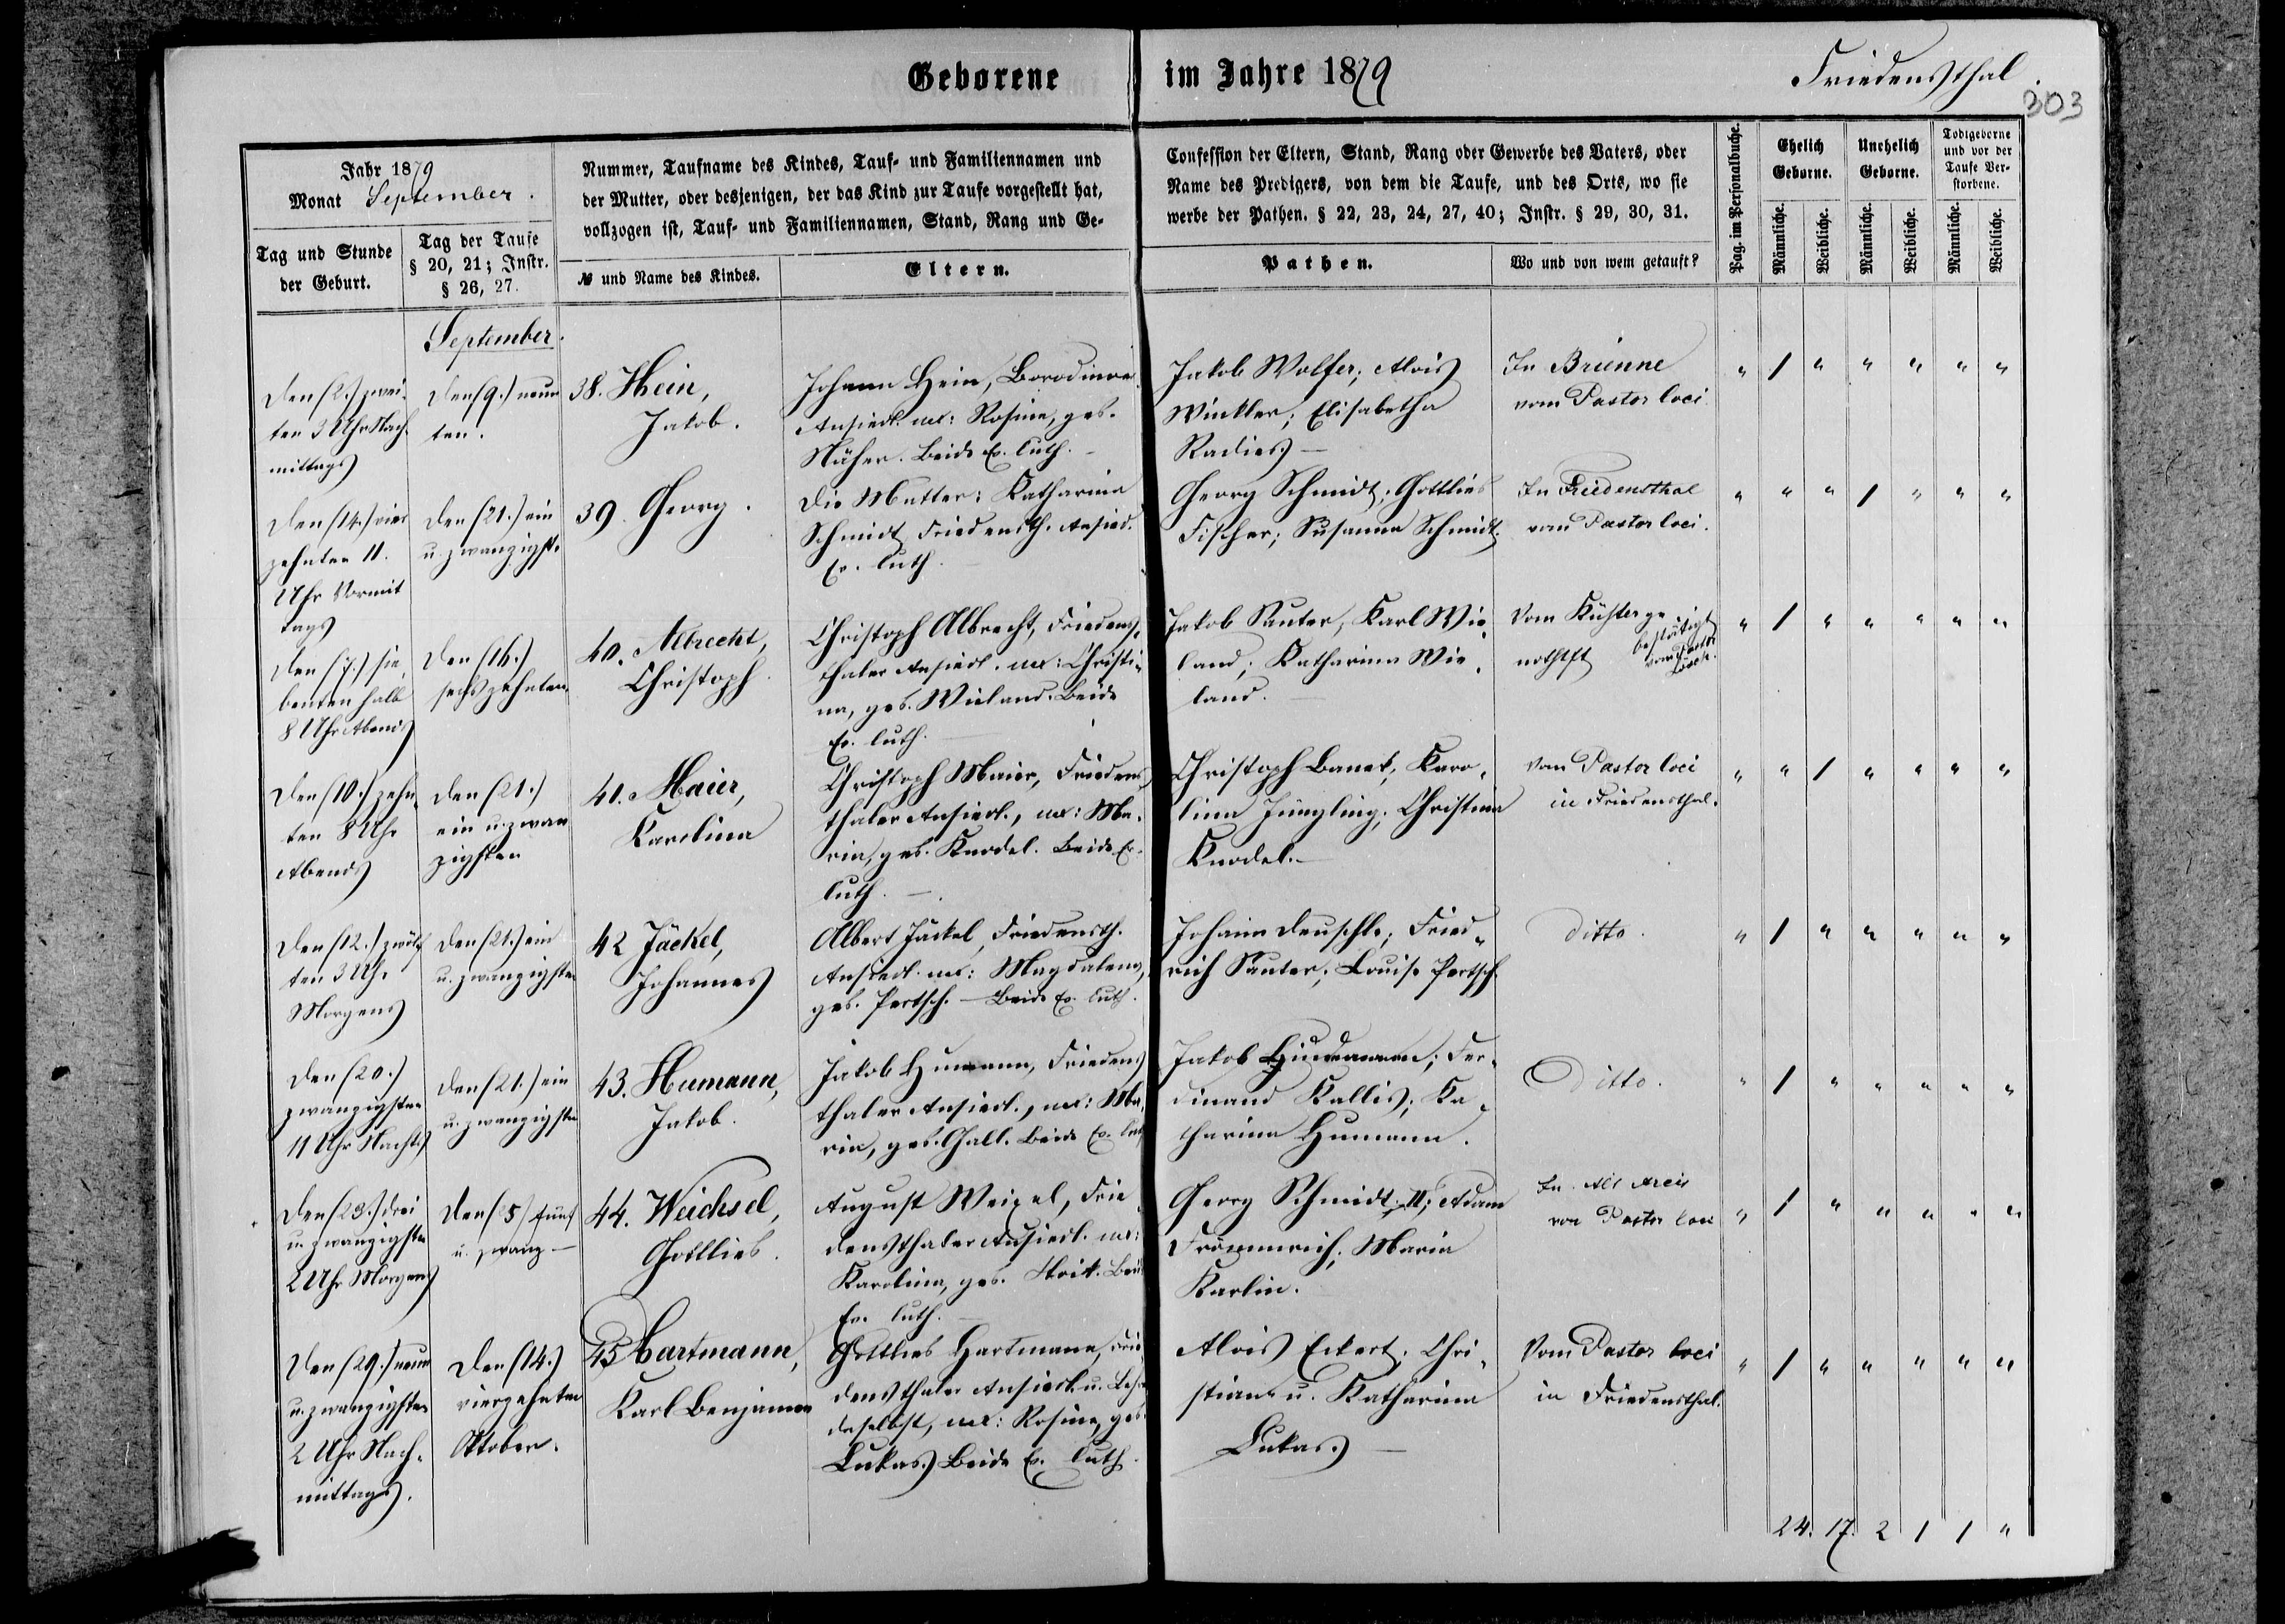 Geborene im Jahre 1879
Friedensthal.
303
Jahr 1879
Monat September.
Tag und Stunde
der Geburt.
Tag der Taufe
§ 20, 21; Instr.
§ 26, 27.
Nummer, Taufname des Kindes, Tauf- und Familiennamen und
der Mutter, oder desjenigen, der das Kind zur Taufe vorgestellt hat,
vollzogen ist, Tauf- und Familiennamen, Stand, Rang und Ge-
№ und Name des Kindes.
Eltern.
Confession der Eltern, Stand, Rang oder Gewerbe des Vaters, oder
Name des Predigers, von dem die Taufe, und des Orts, wo sie
werbe der Pathen. § 22, 23, 24, 27, 40; Instr. § 29, 30, 31.
Pathen.
Wo und von wem getauft?
Pag. im Personalbuche.
Ehelich
Geborne.
Unehelich
Geborne.
Todtgeborne
und vor der
Taufe Ver-
storbene.
Männliche.
Weibliche.
Männliche.
Weibliche.
Männliche.
Weibliche.
September.
Den (2.) zwei-
ten 3 Uhr Nach-
mittags
Den (9.) neun
ten.
38. Hein,
Jakob.
Johann Hein, Borodinoer
Ansiedl. ux: Rosine, geb.
Näher. Beide Ev. luth. –
Jakob Wolfer; Alois
Winkler; Elisabetha
Radies –
In Brienne
vom Pastor loci
" / " " " " "
Den (14.) vier
zehnten 11.
Uhr Vormit
tags
Den (21.) ein
u. zwanzigst.
39. Georg.
Die Mutter: Katharina
Schmidt Friedensth. Ansied.
Ev. luth.
Georg Schmidt; Gottlieb
Fischer; Susanna Schmidt.
In Friedensthal
vom Pastor loci.
" " " / " " "
Den (7.) sie
benten halb
8 Uhr Abends
Den (16.)
sechszehnten
40. Albrecht,
Christoph.
Christoph Albrecht, Friedens-
thaler Ansiedl. ux: Christi-
na, geb. Wieland. Beide
Ev. luth.
Jakob Sauter, Karl Wie-
land; Katharina Wie-
land. –
Vom Küster ge
nothtft
bestätigt
vom Pastor
" / " " " " "
Den (10.) zehn
ten 8 Uhr
Abends
Den (21.)
ein u. zwan
zigsten
41. Maier,
Karolina
Christoph Maier, Friedens
thaler Ansiedl., ux: Ma-
ria, geb. Knodel. Beide Ev.
luth. –
Christoph Banek, Karo-
lina Jüngling; Christina
Knodel. –
Vom Pastor loci
in Friedensthal.
" " / " " " "
Den (12.) zwölf
ten 3 Uhr
Morgens
Den (21.) ein
u. zwanzigsten
42 Jäckel,
Johannes
Albert Jäckel, Friedensth.
Ansiedl. ux: Magdalena,
geb. Pertsch. – Beide Ev. luth.
Johann Deuschle; Fried-
rich Sauter; Louise Pertsch
ditto.
" / " " " " "
Den (20.)
zwanzigsten
11 Uhr Nachts
Den (21.) ein
u. zwanzigsten
43. Humann,
Jakob.
Jakob Humann, Friedens
thaler Ansiedl., ux: Ma-
ria, geb. Gall. Beide Ev. luth
Jakob Humann; Fer-
dinand Kallis; Ka-
tharina Humann.
Ditto.
" / " " " " "
Den (23.) drei
u. zwanzigsten
2 Uhr Morgens
Den (25) fünf
u. zwanz –
44. Weichsel,
Gottlieb.
August Weixel, Frie
densthaler Ansiedl. ux:
Karolina, geb.
Ev. luth.
Georg Schmidt II; Adam
Frömmrich; Maria
Karlin.
In Alt Arcis
von Pastor loci
" / " " " " "
Den (29.) neun
u. zwanzigsten
2 Uhr Nach-
mittags.
Den (14.)
vierzehnten
Oktober.
45 Hartmann,
Karl Benjamin
Gottlieb Hartmann, Frie
densthaler Ansiedl. u. Lehr
daselbst, ux: Rosina, geb.
Lukas. Beide Ev. luth.
Alois Eckert; Chri-
stian u. Katharina
Lukas. –
Vom Pastor loci
in Friedensthal.
" / " " " " "
24. 17. 2 / / "